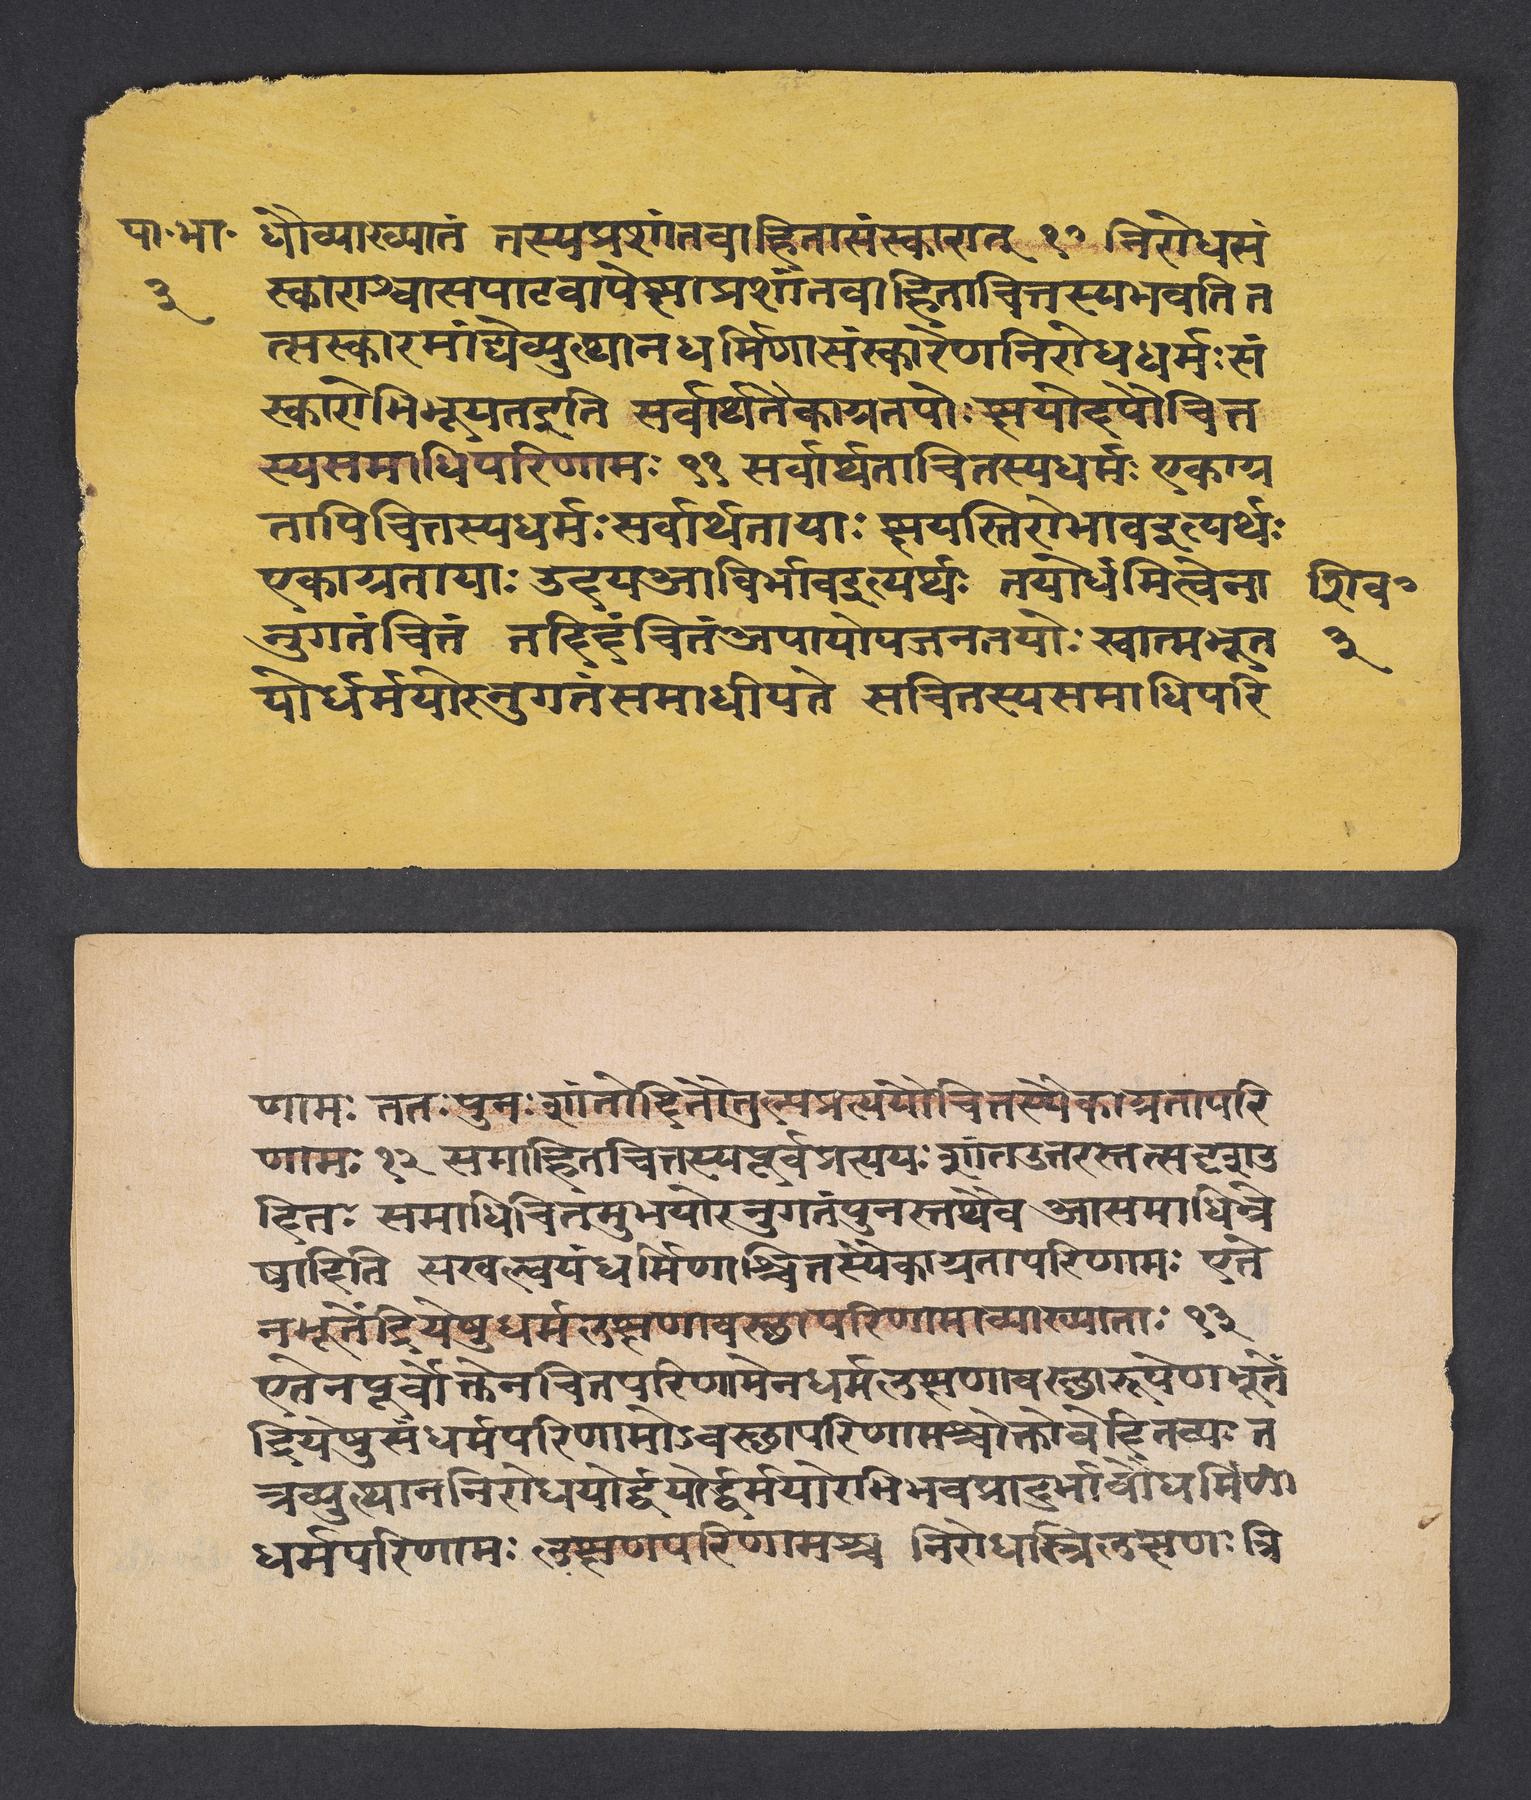 पा॰भा॰ धौव्याख्यातं तस्यप्रशांतवाहितासंस्कारात् १० निरोधसं
३ स्काराभ्यासपाटवापेक्षाप्रशांतवाहिताचित्तस्यभवतित
त्सस्कारमांद्येव्युत्थानधर्मिणासंस्कारेणनिरोधधर्मः सं
स्कारोभिभूयतइति सर्वार्थतैकाग्रतयोः क्षयोदयौचित्त
स्यसमाधिपरिणामः ११ सर्वार्थताचितस्यधर्मः एकाग्र
तापिचित्तस्यधर्मः सर्वार्थतायाः क्षयस्तिरोभावइत्यर्थः
एकाग्रतायाः उदयआविर्भावइत्यर्थः तयोर्धर्मित्वेना शिव॰
नुगतंचितं तदिदंचितंअपायोपजनतयोः स्वात्मभूत ३
योर्धर्मयोरनुगतंसमाधीयते सचितस्यसमाधिपरि
णामः ततः पुनः शांतोदितौतुल्यप्रत्ययौचित्तस्यैकाग्रतापरि
णामः १२ समाहितचित्तस्यपूर्वप्रत्ययः शांतउतरस्तत्सदृशउ
दितः समाधिचितंमुभयोरनुगतंपुनस्तथैव आसमाधिभ्रे
षादिति सखल्वयंधर्मिणाश्चितस्यैकाग्रतापरिणामः एते
नभूतेंद्रियेषुधर्मलक्षणावस्छापरिणामाव्याख्याताः १३
एतेनपूर्वोक्तेनचितपरिणामेनधर्मलक्षणावस्छारूपेणभूतें
द्रियेषुसंधर्मपरिणामोऽवस्छापरिणामश्चोक्तोवेदितव्यः त
त्रव्युत्थाननिरोधयोर्द्वयोर्द्धर्मयोरभिभवप्रादुर्भावौधर्मिणि
धर्मपरिणामः लक्षणपरिणामश्च निरोधस्त्रिलक्षणः त्रि